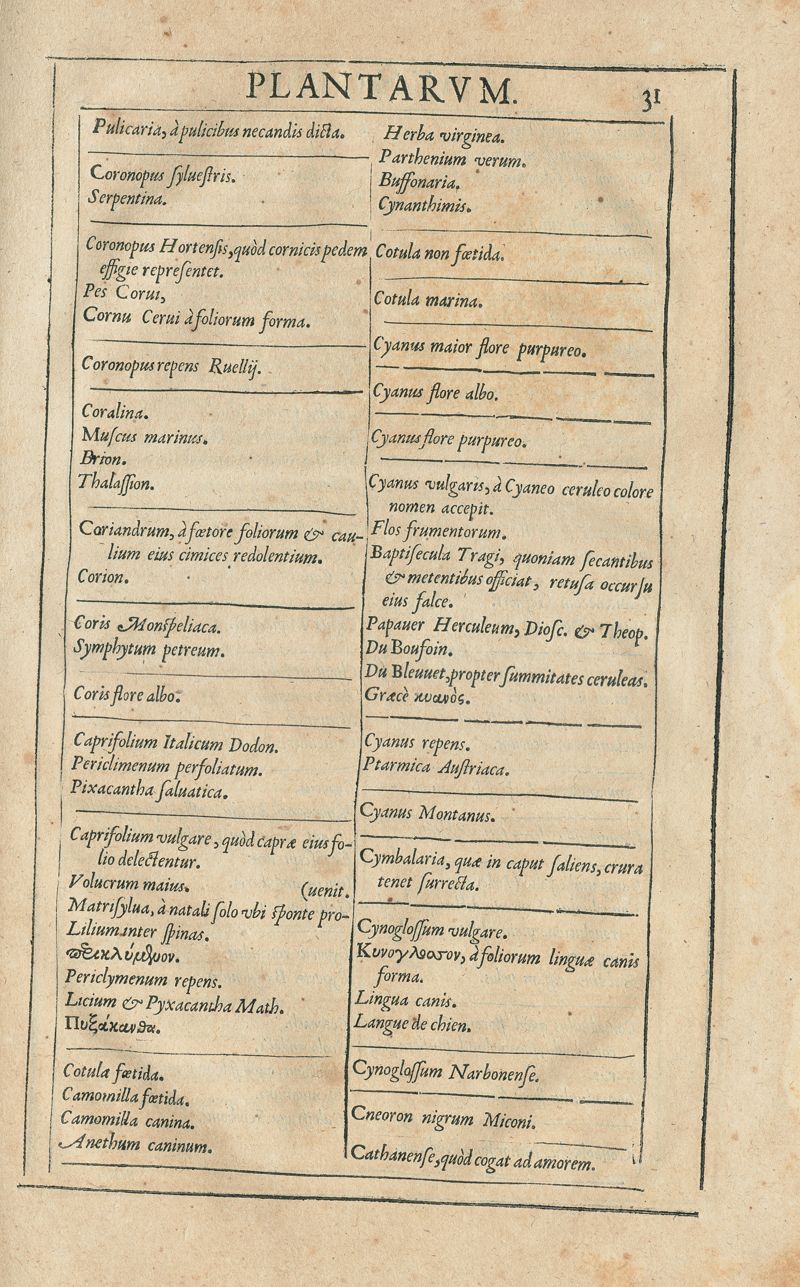 PLANTARVM.
31
Pulicaria, à pulicibus necandis dicta.
Coronopus ſylueſtris.
Serpentina.
Coronopus Hortenſis, quòd cornicis pedem
effigie repreſentet.
Pes Corui,
Cornu Cerui à foliorum forma.
Coronopus repens Ruellij.
Coralina.
Muſcus marinus.
Brion.
Thalaſſion.
Coriandrum, à fœtore foliorum & cau-
lium eius cimices redolentium.
Corion.
Coris Monſpeliaca.
Symphytum petreum.
Coris flore albo.
Caprifolium Italicum Dodon.
Periclimenum perfoliatum.
Pixacantha ſaluatica.
Caprifolium vulgare, quòd capræ eius fo-
lio delectentur.
Volucrum maius. (uenit.
Matriſylua, à natali ſolo vbi ſponte pro-
Lilium inter ſpinas.
περικλύμενον.
Periclymenum repens.
Licium & Pyxacantha Math.
Πυξάκανθα.
Cotula fœtida.
Camomilla fœtida.
Camomilla canina.
Anethum caninum.
Herba virginea.
Parthenium verum.
Buffonaria.
Cynanthimis.
Cotula non fœtida.
Cotula marina.
Cyanus maior flore purpureo.
Cyanus flore albo.
Cyanus flore purpureo.
Cyanus vulgaris, à Cyaneo ceruleo colore
nomen accepit.
Flos frumentorum.
Baptiſecula Tragi, quoniam ſecantibus
& metentibus officiat, retuſa occurſu
eius falce.
Papauer Herculeum, Dioſc. & Theop.
Du Boufoin.
Du Bleuuet, propter ſummitates ceruleas.
Græcè κυανὸς.
Cyanus repens.
Ptarmica Auſtriaca.
Cyanus Montanus.
Cymbalaria, quæ in caput ſaliens, crura
tenet ſurrecta.
Cynogloſſum vulgare.
Κυνογλωσσον, à foliorum linguæ canis
forma.
Lingua canis.
Langue de chien.
Cynogloſſum Narbonenſe.
Cneoron nigrum Miconi.
Cathanenſe, quòd cogat ad amorem.